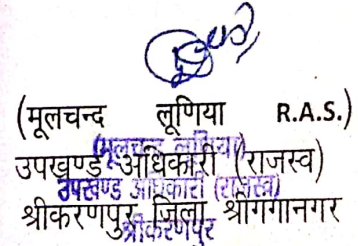 (मूलचन्द लूणिया R.A.S.)
उपखण्ड अधिकारी (राजस्व)
श्रीकरणपुर जिला श्रीगंगानगर
(मूलचन्द लूणिया)
उपखण्ड अधिकारी (राजस्व)
श्रीकरणपुर